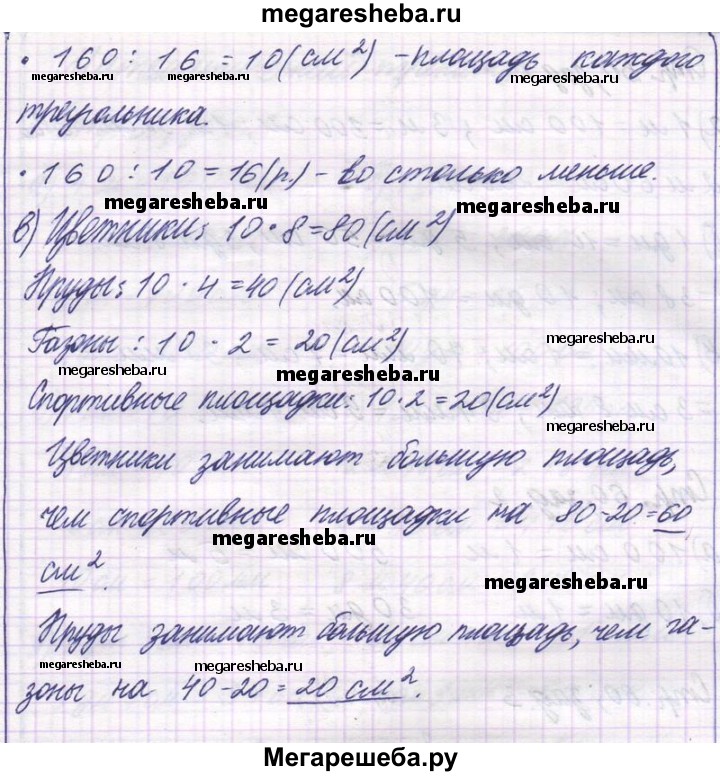 megaresheba.ru
• 160 : 16 = 10 (см²) - площадь каждого
megaresheba.ru megaresheba.ru megaresheba.ru
треугольника.
• 160 : 10 = 16 (р.) - во столько меньше.
megaresheba.ru megaresheba.ru
в) Цветники: 10 • 8 = 80 (см²)
Пруды: 10 • 4 = 40 (см²)
Газоны : 10 • 2 = 20 (см²)
megaresheba.ru
megaresheba.ru
Спортивные площадки: 10 • 2 = 20 (см²)
megaresheba.ru
Цветники занимают большую площадь,
чем спортивные площадки на 80-20=60
см².
megaresheba.ru
Пруды занимают большую площадь, чем га-
megaresheba.ru megaresheba.ru
зоны на 40-20 = 20 см².
megaresheba.ru
Мегарешеба.ру